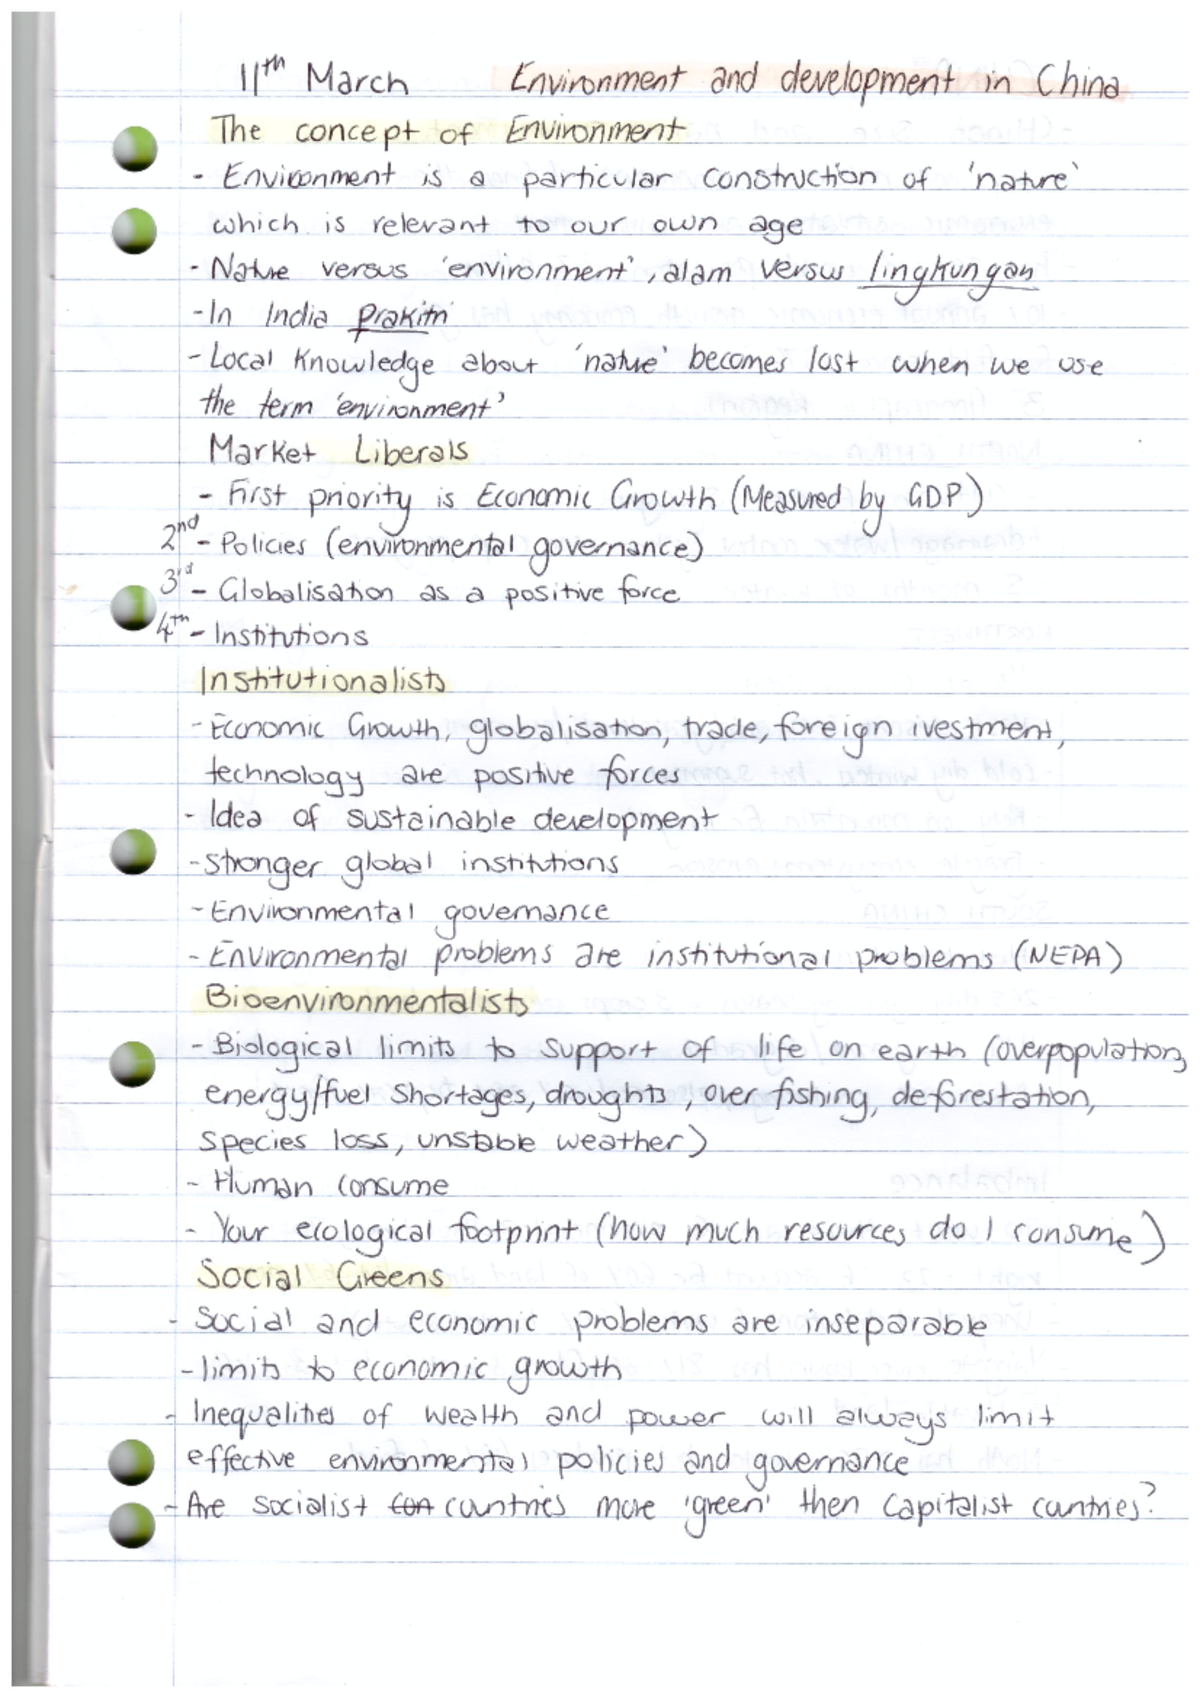 11th March Environment and development in China
The concept of Environment
- Environment is a particular construction of 'nature'
which is relevant to our own age
- Nature versus 'environment', alam versus lingkungan
- In India prakitri
- Local knowledge about 'nature' becomes lost when we use
the term 'environment'
Market Liberals
- First priority is Economic Growth (Measured by GDP)
2nd - Policies (environmental governance)
3rd - Globalisation as a positive force
4th - Institutions
Institutionalists
- Economic Growth, globalisation, trade, foreign ivestment,
technology are positive forces
- Idea of sustainable development
- Stronger global institutions
- Environmental governance
- Environmental problems are institutional problems (NEPA)
Bioenvironmentalists
- Biological limits to support of life on earth (overpopulation,
energy/fuel shortages, droughts, over fishing, deforestation,
species loss, unstable weather)
- Human consume
- Your ecological footprint (how much resources do I consume)
Social Greens
- Social and economic problems are inseparable
- limits to economic growth
- Inequalities of wealth and power will always limit
effective environmental policies and governance
- Are socialist countries more 'green' then capitalist countries?